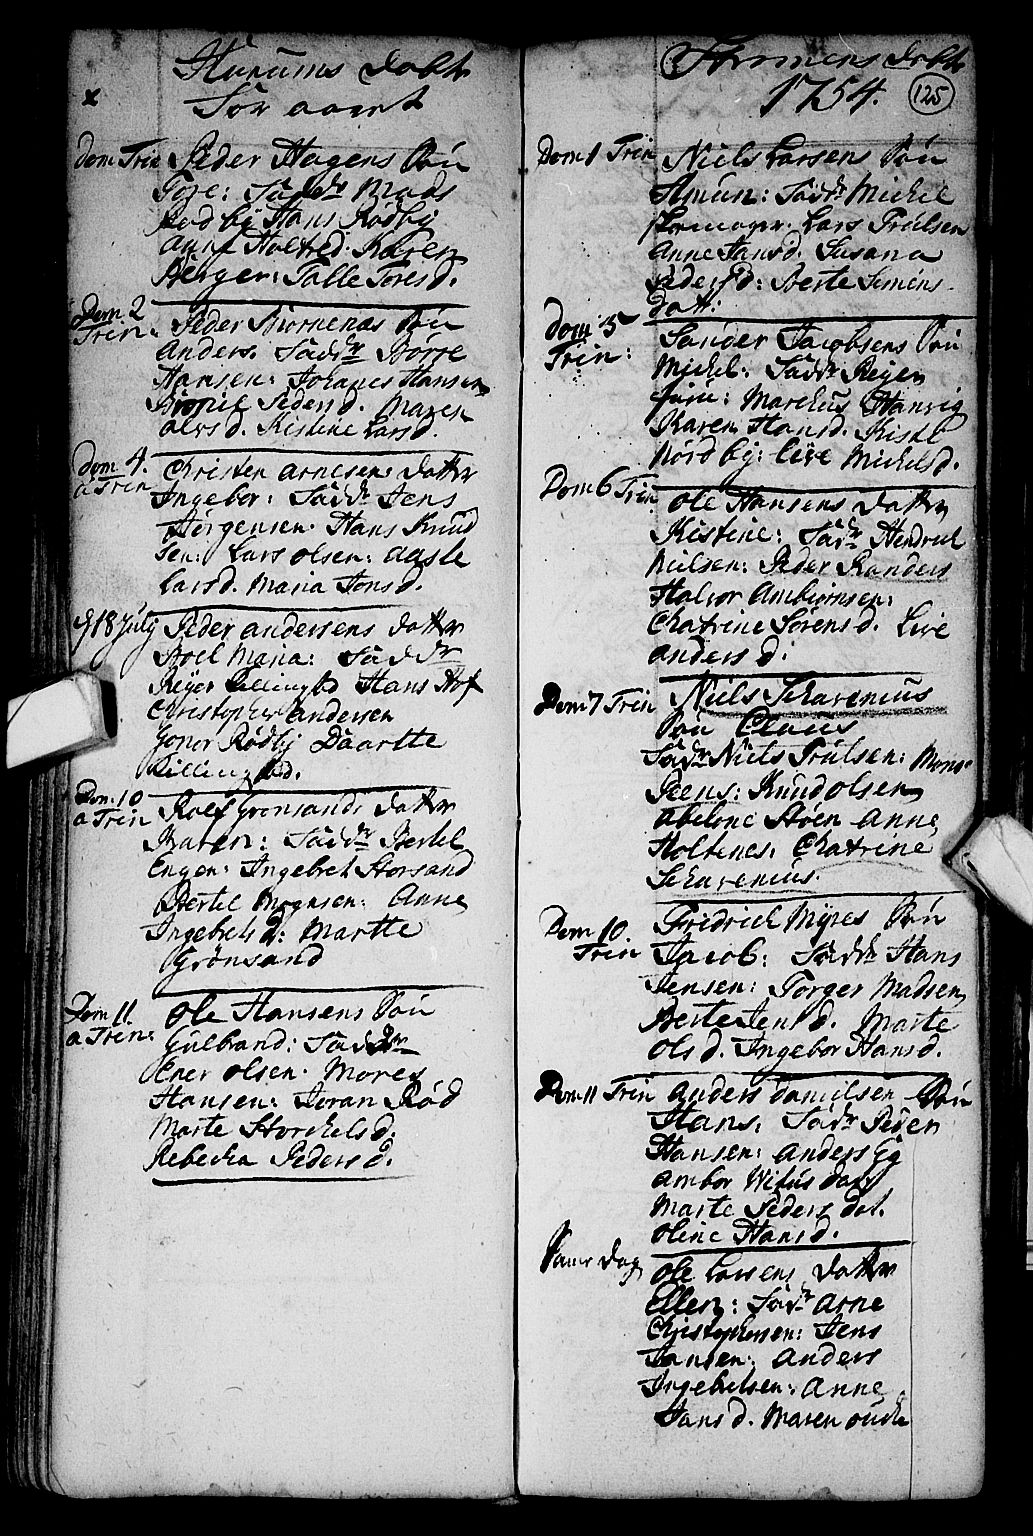 Hurums Døbte
for aaret
Dom Trin Peder Hagens Søn
Tore: Fadd: Mads
Rødby Hans Rødby
Holted: Karen
Berger: Talle Toresd.
Dom 2 Trin: Peder Biørnenæs Søn
Anders. Fadd: Børre
Hansen: Johanes Hansen
Pedersd. Maren
Alvsd. Kistene Larsd.
Dom 4. a Trin Christen Arnesens Datter
Ingebor: Fadd: Jens
Jørgensen. Hans Knud
sen: Lars Olsen: Aaste
Larsd. Maria Jonsd.
18 July Peder Andersens Datter
Maria: Faddr
Reyer Killingstd Hans Hof
Christopher Andersen
Goner Rødby Daartte
Killingstd.
Dom: 10 a Trin Rolf Grønsands Datter
Karen: Faddr Bertel
Engen: Ingebret Storsand
Bertel Mognsen: Anne
Ingebrets D: Martte
Grønsand
Dom 11 a Trin: Ole Hansens Søn
Gulband: Faddr
Ener Olsen. Mores
Hansen: Joran Rød
Marte Storchelsd.
Rebecka Pedersd.
Strømens Døbte
1754. 125
Dom 1 Trin Niels Larsens Søn
Amun: Faddr Michel
Lars Trulsen
Anne Jansd. Susana
Pedersd: Berte Simens-
datt:
Dom: 5 Trin: Sander Jacobsens Søn
Michel: Faddr Reyer
Marchus Hanvig
Karen Hansd. Kisti
Nordby: Live Michelsd.
Dom 6 Trin Ole Hansens Datter
Kistine: Fadr Hendrich
Nielsen: Peder Randers
Halvor Ambiørnsen:
Chatrine Sørensd. Live
Andersd:
Dom 7 Trin Niels Schavenius
Søn Claus
Fadr Niels Trulsen: Mons
Peens: Knud Olsen
Abelone Støen Anne
Holtenes: Chatrine
Schavenius.
Dom 10 Trin Fridrich Myres Søn
Jacob: Faddr Hans
Jensen: Torger Madsen
Berte Jensd. Marte
Olsd. Ingebor Hansd.
Dom 11 Trin Anders Danielsen Søn
Hans. Fadr Peder
Hansen: Anders
Ambor Witus dat
Marte Peders dat.
Oline Hansd.
Same Dag Ole Larsens Datter
Ellen: Fadr Arne
Christophersen: Jens
Jansen: Anders
Ingebretsen: Anne
Jansd. Maren